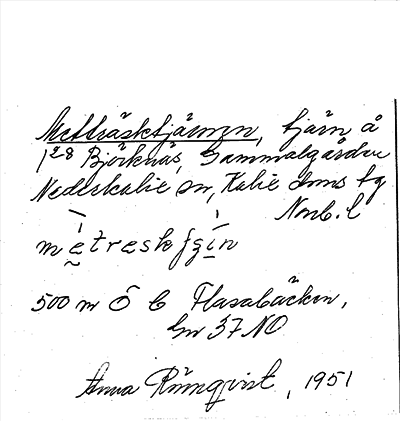 Metträsktjärnen, tjärn å
1²⁸ Björknäs, Gammalgården
Nederkalix sn, Kalix doms tg
Norrb. l
mètreskjzìn
500 m Ö b Flasabäcken,
Gn 37 NO
Anna Rönnqvist, 1951